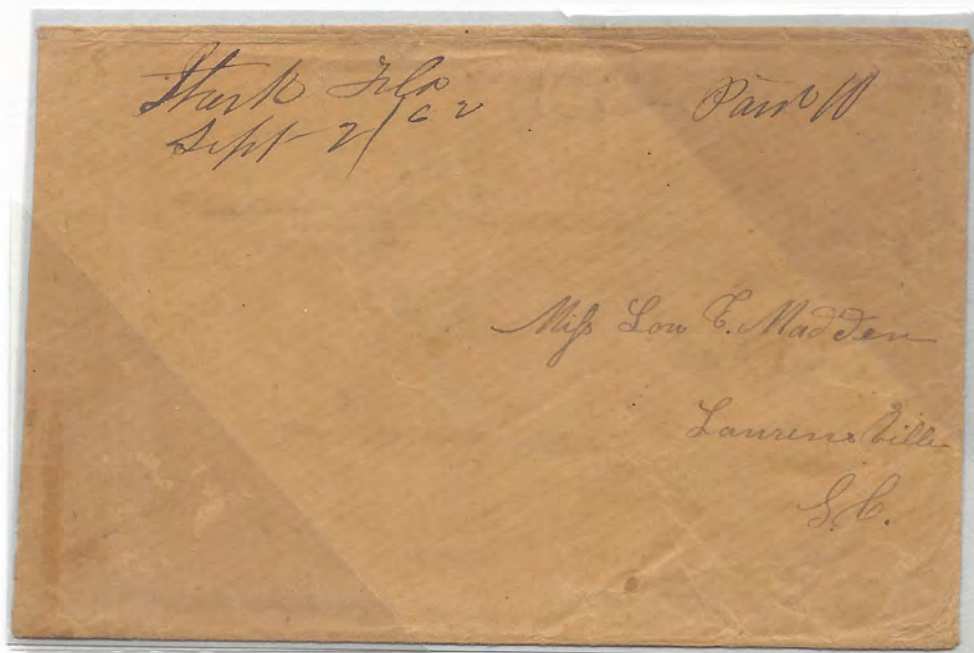 Stark Fla
Sept 2/62
Paid 10
Miss Lou C. Madden
Laurensville
S.C.